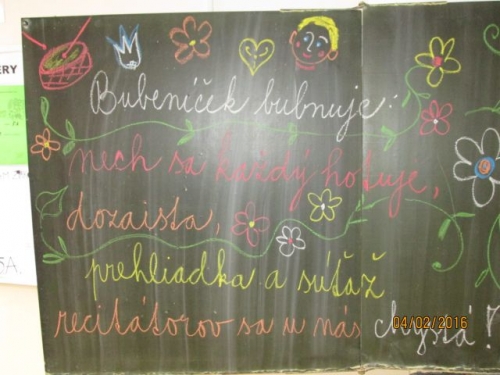 ERY
Bubeníček bubnuje:
nech sa každý hotuje,
dozaista,
prehliadka a súťaž
recitátorov sa u nás chystá!
SA.
04/02/2016